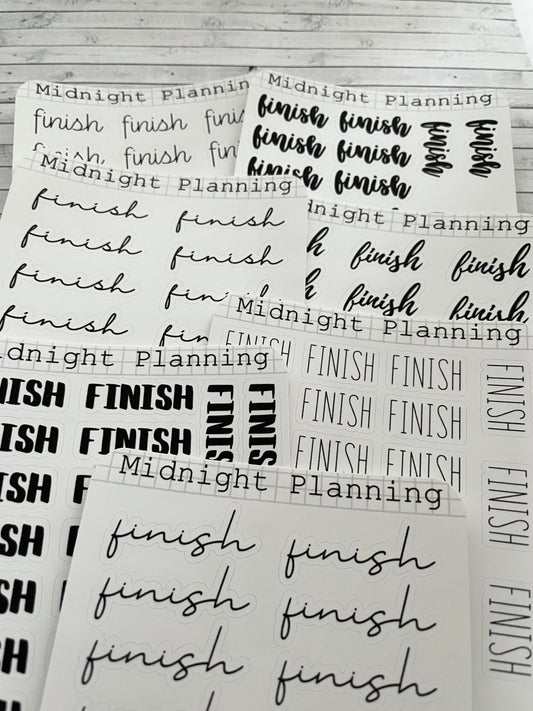 Midnight Planning
finish finish
finish finish
Midnight Planning
finish finish finish finish
finish finish
finish finish
Midnight Planning
finish finish
finish finish
finish finish
finish
Midnight Planning
finish finish
finish finish
Midnight Planning
FINISH FINISH FINISH
FINISH FINISH
FINISH FINISH FINISH
FINISH
Midnight Planning
FINISH
FINISH
Midnight Planning
finish finish
finish finish
finish finish